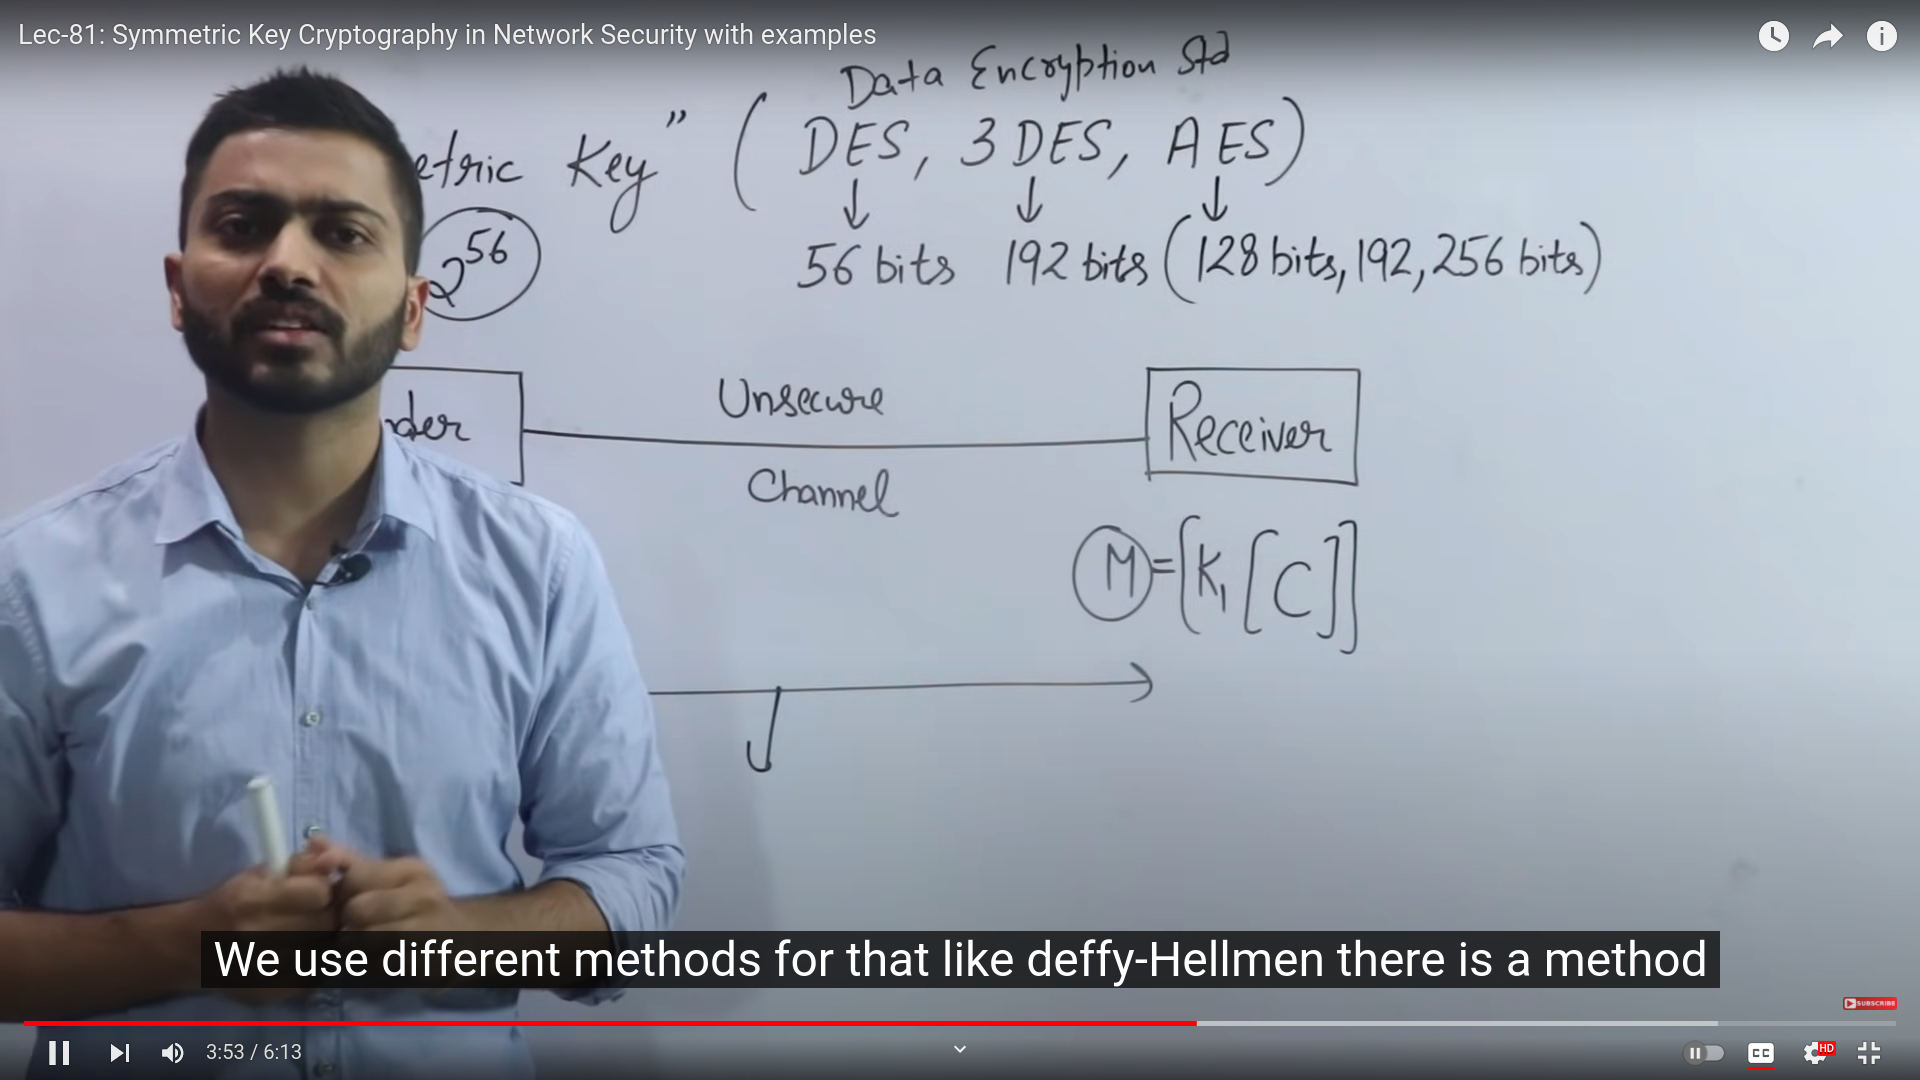 Lec-81: Symmetric Key Cryptography in Network Security with examples
Data Encryption Std
etric Key" ( DES, 3 DES, AES)
2^56
56 bits 192 bits (128 bits, 192, 256 bits)
nder
Unsecure
Channel
Receiver
M = [K1 [C]]
We use different methods for that like deffy-Hellmen there is a method
SUBSCRIBE
3:53 / 6:13
CC
HD